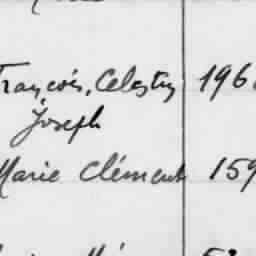 François, Celestin 196
Joseph
Marie Clément 159